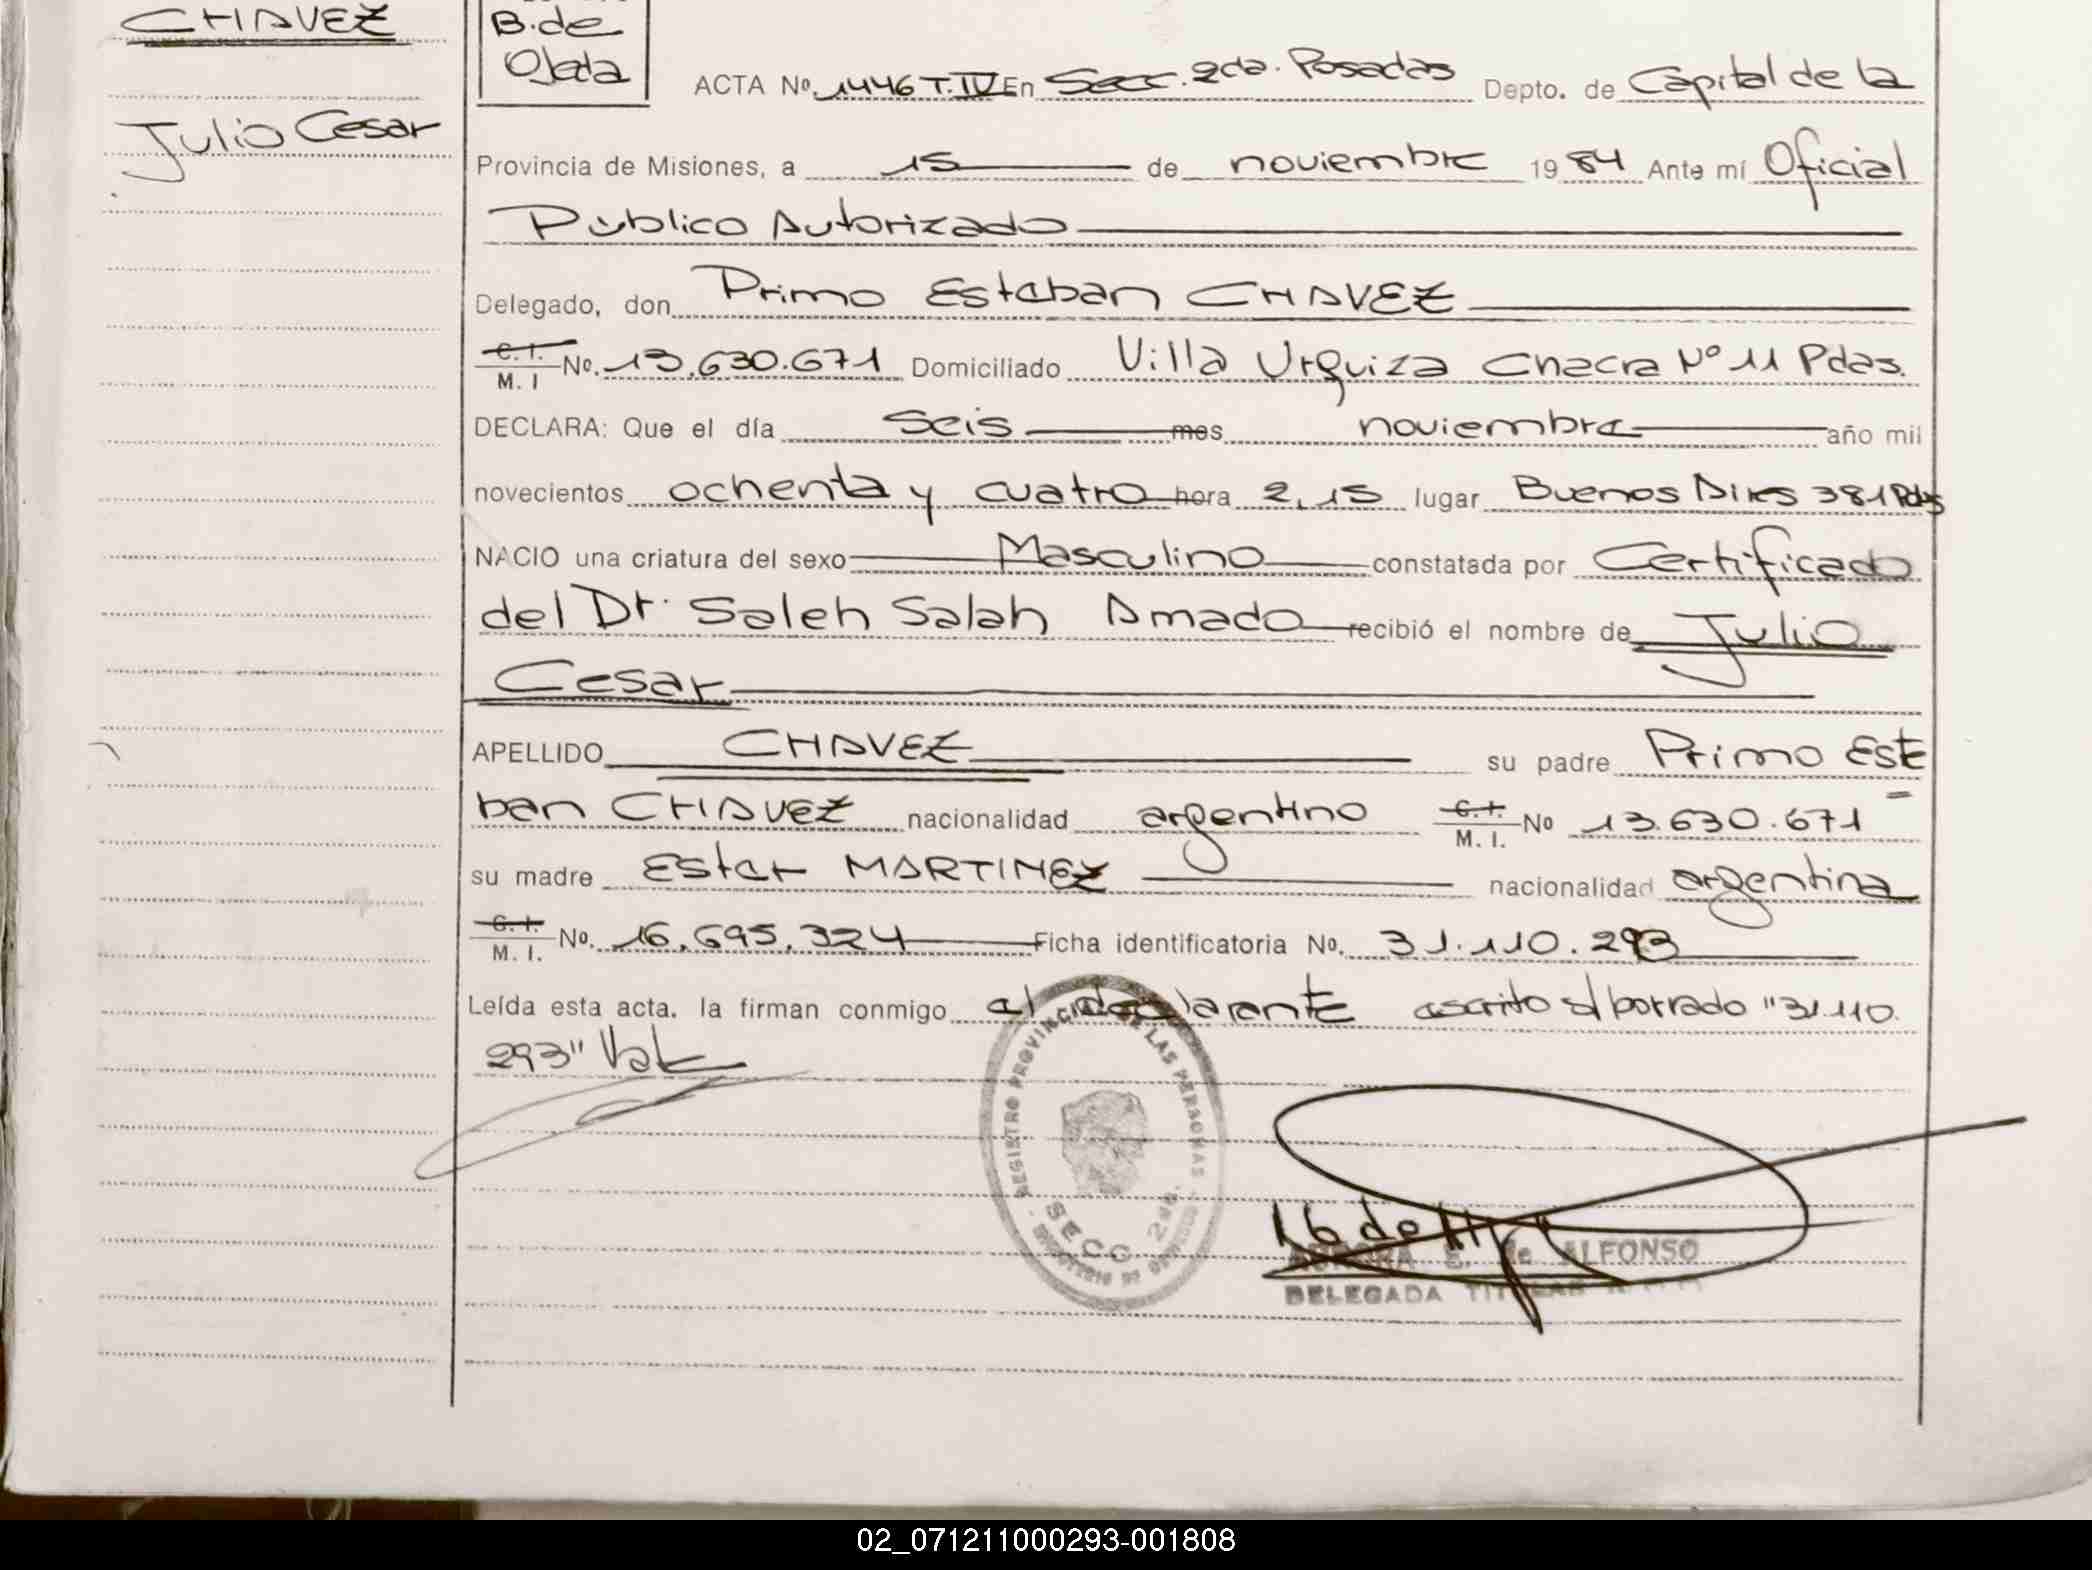 CHAVEZ
Julio Cesar
B. de
Ojeda
ACTA Nº 1446 T. IV En Secc. 2da. Posadas Depto. de Capital de la
Provincia de Misiones, a 15 de noviembre 1984 Ante mí Oficial
Público Autorizado
Delegado, don Primo Esteban CHAVEZ
C. I. / M. I Nº. 13.630.671 Domiciliado Villa Urquiza Chacra Nº 11 Pdas.
DECLARA: Que el día seis mes noviembre año mil
novecientos ochenta y cuatro hora 2,15 lugar Buenos Aires 381 Pdas
NACIO una criatura del sexo Masculino constatada por Certificado
del Dr. Saleh Salah Amado recibió el nombre de Julio
Cesar
APELLIDO CHAVEZ su padre Primo Este
ban CHAVEZ nacionalidad argentino C. I. / M. I. Nº 13.630.671
su madre Ester MARTINEZ nacionalidad argentina
C. I. / M. I. Nº. 16.695.324 Ficha identificatoria Nº. 31.110.293
Leída esta acta, la firman conmigo el declarante escrito s/borrado "31.110.
293" Vale
REGISTRO PROVINCIAL DE LAS PERSONAS
SECC 2da.
E. de ALFONSO
DELEGADA TITULAR
02_071211000293-001808